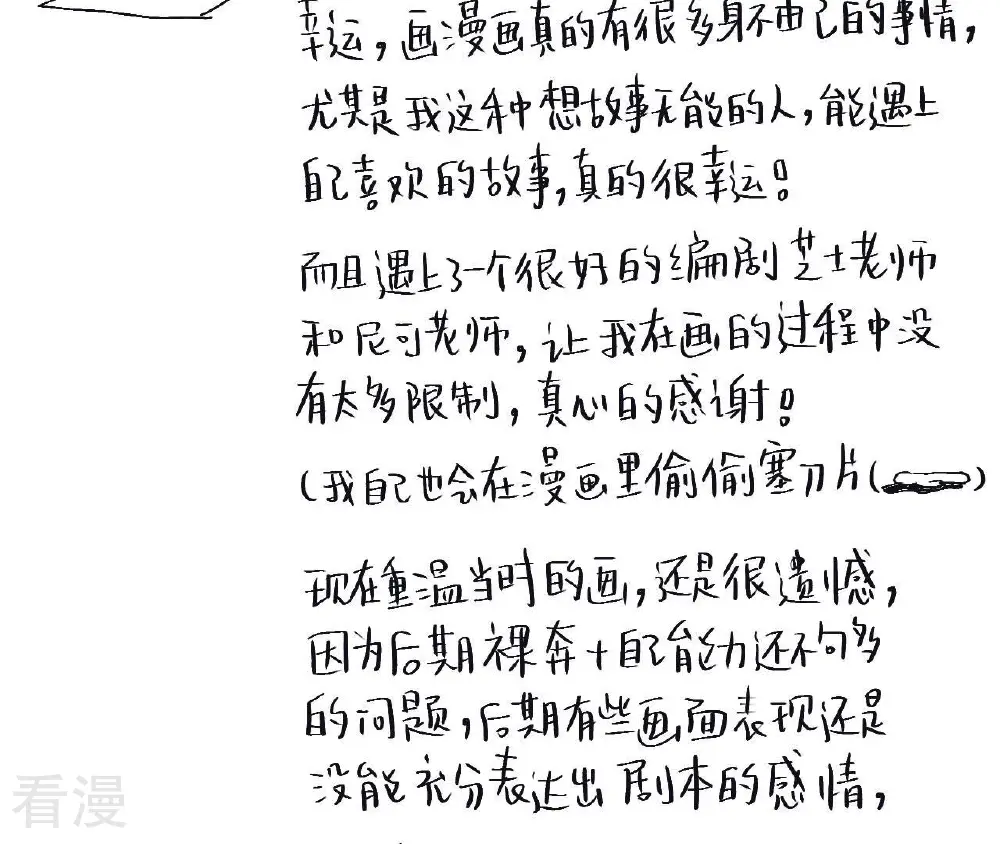 幸运，画漫画真的有很多身不由己的事情，
尤其是我这种想故事无能的人，能遇上
自己喜欢的故事，真的很幸运！
而且遇上了一个很好的编剧芝士老师
和尼可老师，让我在画的过程中没
有太多限制，真心的感谢！
（我自己也会在漫画里偷偷塞刀片（
）
现在重温当时的画，还是很遗憾，
因为后期裸奔+自己能力还不够
的问题，后期有些画面表现还是
没能充分表达出剧本的感情，
看漫